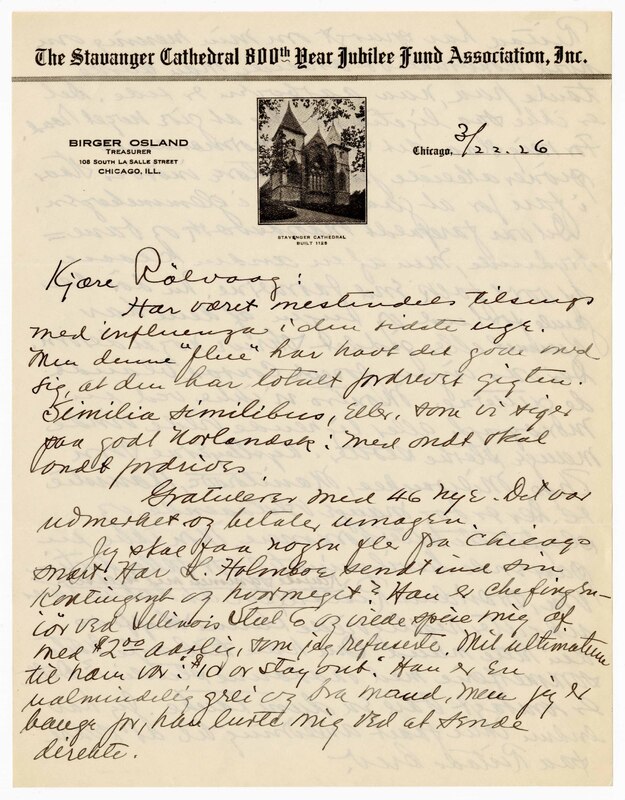 The Stavanger Cathedral 800th Year Jubilee Fund Association, Inc.
BIRGER OSLAND
TREASURER
108 SOUTH LA SALLE STREET
CHICAGO, ILL.
STAVENGER CATHEDRAL
BUILT 1125
Chicago, 3/22.26
Kjære Rølvaag:
Har været mestendeels tilsengs
med influenza i den sidste uge.
Men denne "flue" har havt det gode med
sig, at den har totalt fordrevet gigten.
Similia similibus, eller, som vi siger
paa godt Norlandsk: med ondt skal
ondt fordrives
Gratulerer med 46 nye. Det var
udmerket og betaler umagen.
Jeg skal faa nogen fler fra Chicago
snart. Har L. Holmboe sendt ind sin
Kontingent og hvormeget? Han er chefingen-
iör ved Illinois Steel Co og vilde spise mig af
med $2.00 aarlig, som jeg refuserte. Mit ultimatum
til ham var: "$10 or stay out". Han er en
ualmindelig grei og bra mand, men jeg er
bange for, han lurte mig ved at sende
direkte.